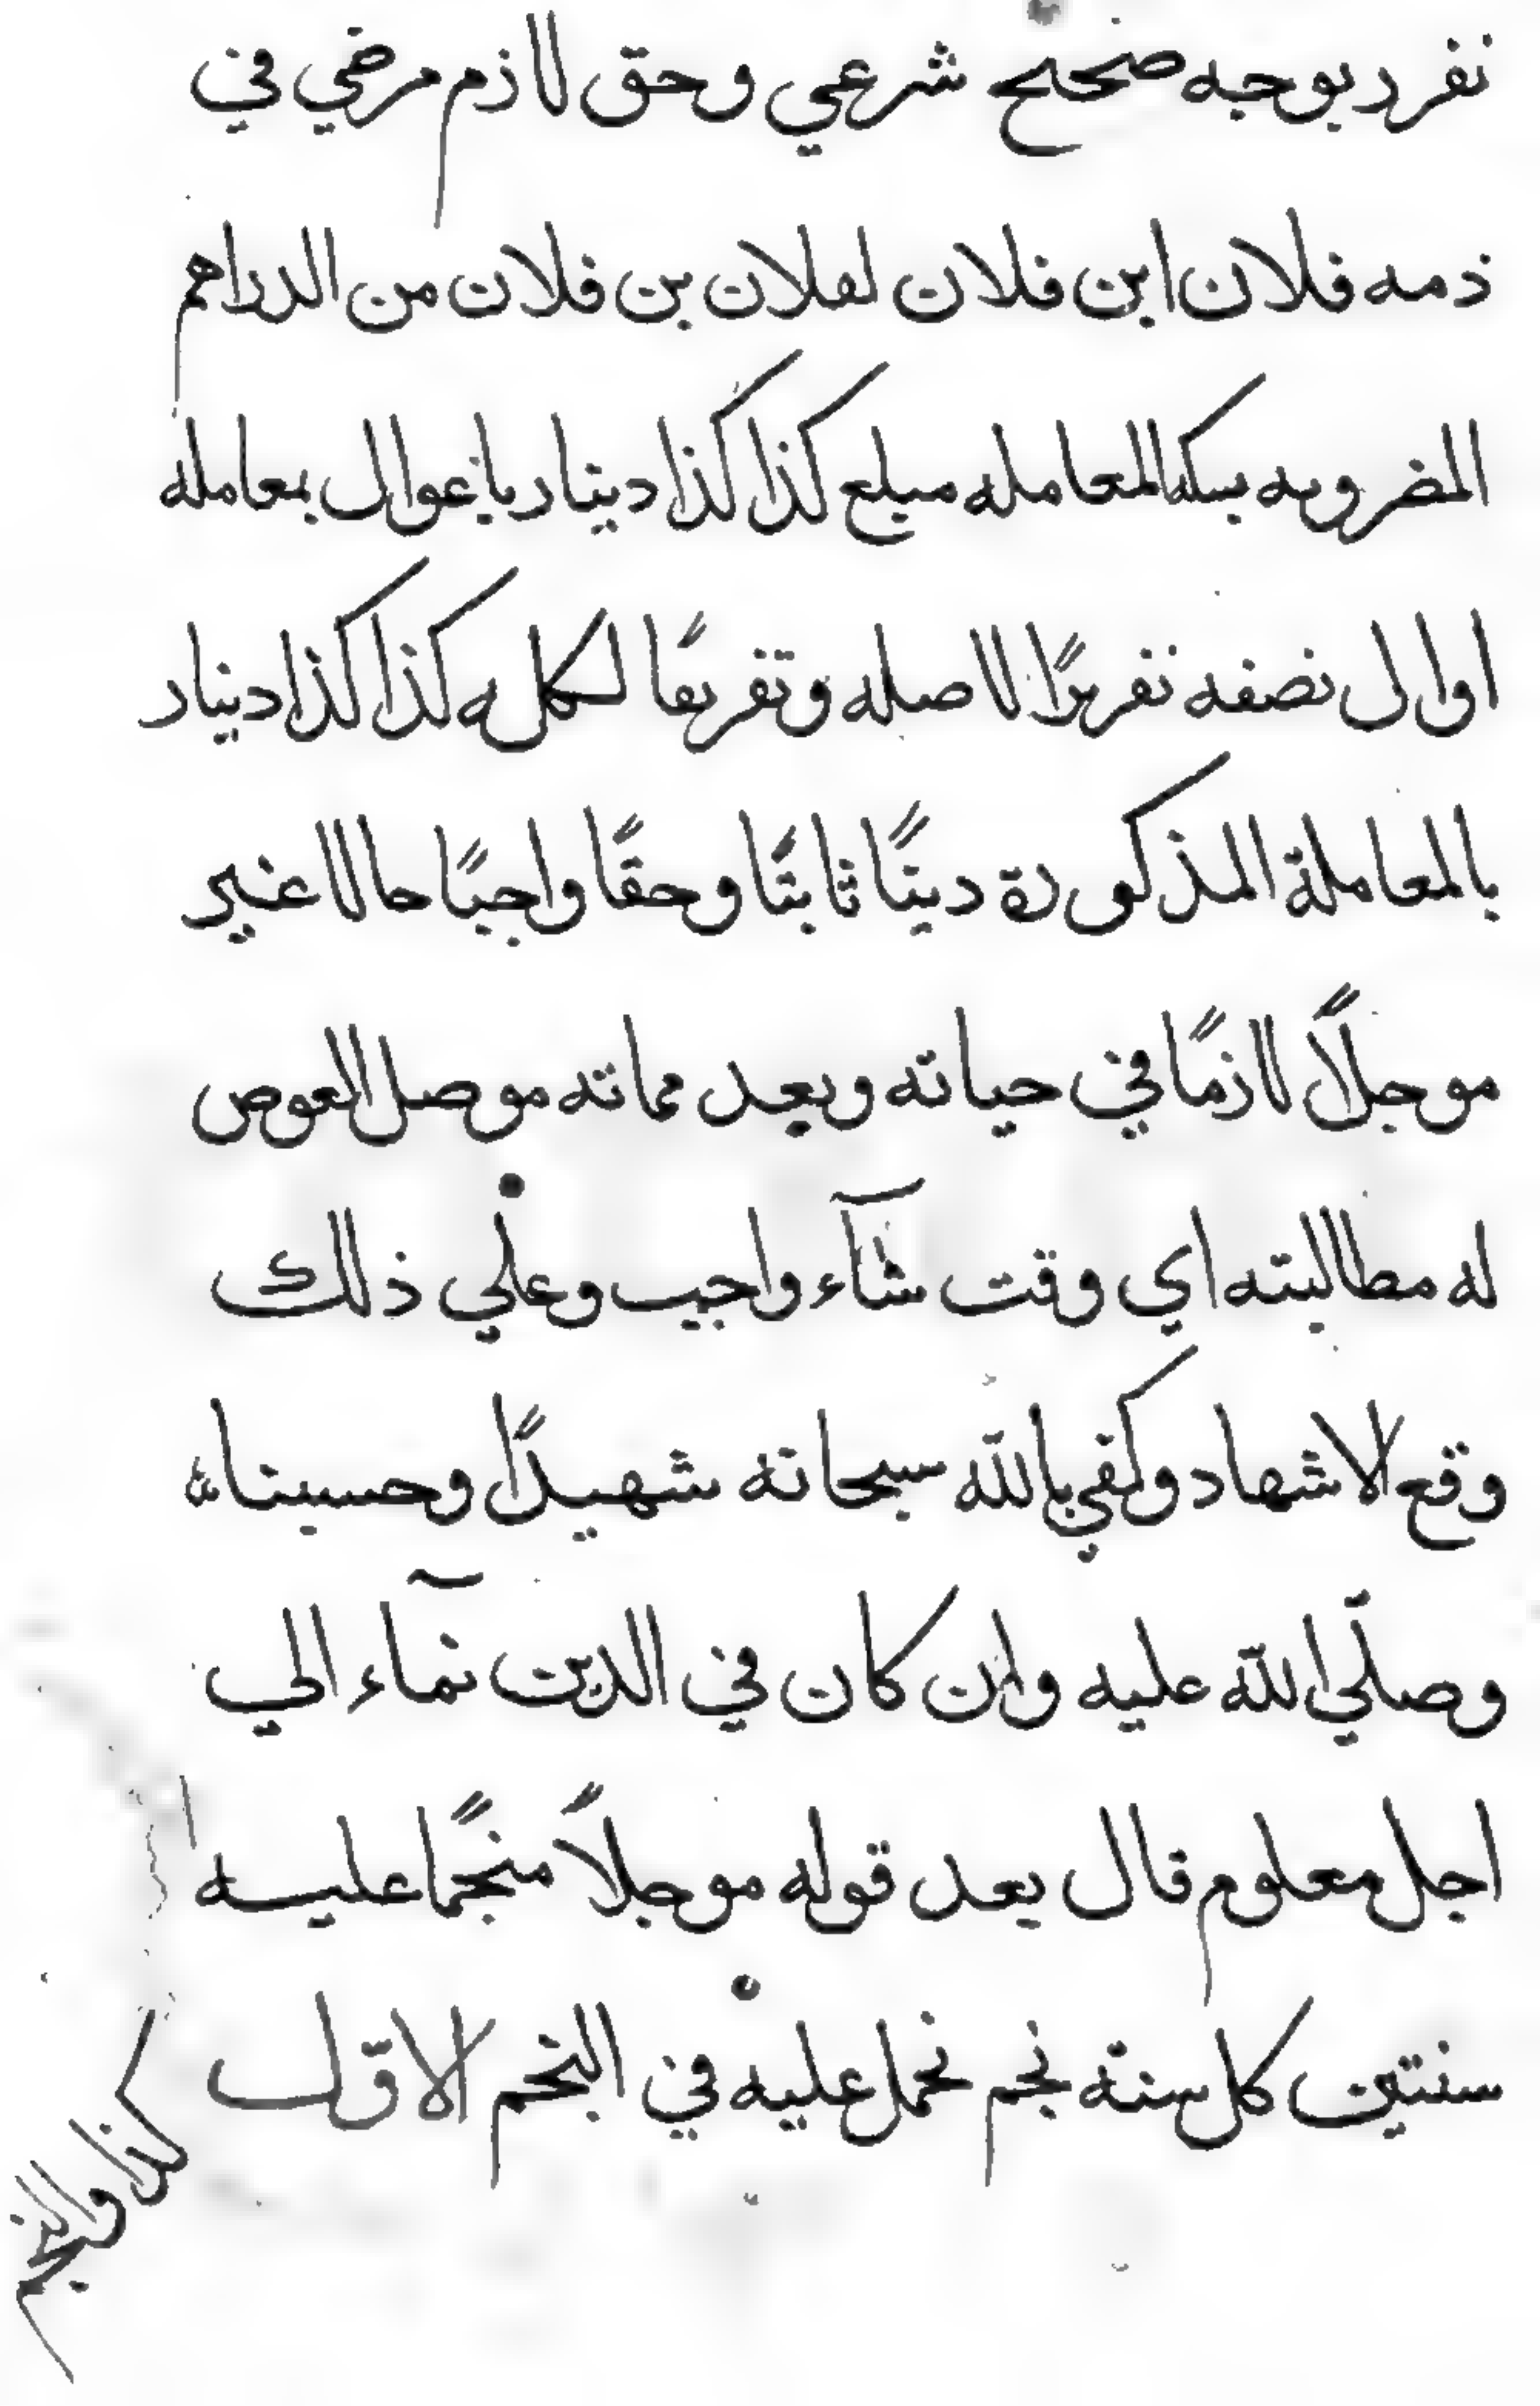 نفرد بوجه صحيح شرعي وحق لازم مرضي في
ذمه فلان ابن فلان لفلان بن فلان من الدراهم
المضروبه بسكه المعامله مبلع كذا كذا دينار بمعامله
اوال نصفه تقريرًا لاصله وتفريعًا لكله كذا كذا دينار
بالمعاملة المذكورة دينًا ثابتًا وحقًا واجبًا حالا غير
موجلاً لازمًا في حياته وبعد مماته موصل العوض
له مطالبته اي وقت شآء واجب وعلي ذلك
وقع الاشهاد وكفي بالله سبحانه شهيدًا وحسبنا
وصلّي الله عليه وان كان في الدين نمآء الي
اجل معلوم قال بعد قوله موجلاً منجمًا عليه
سنتين كل سنة نجم نحمل عليه في النجم الاوّل
كذا والنجم